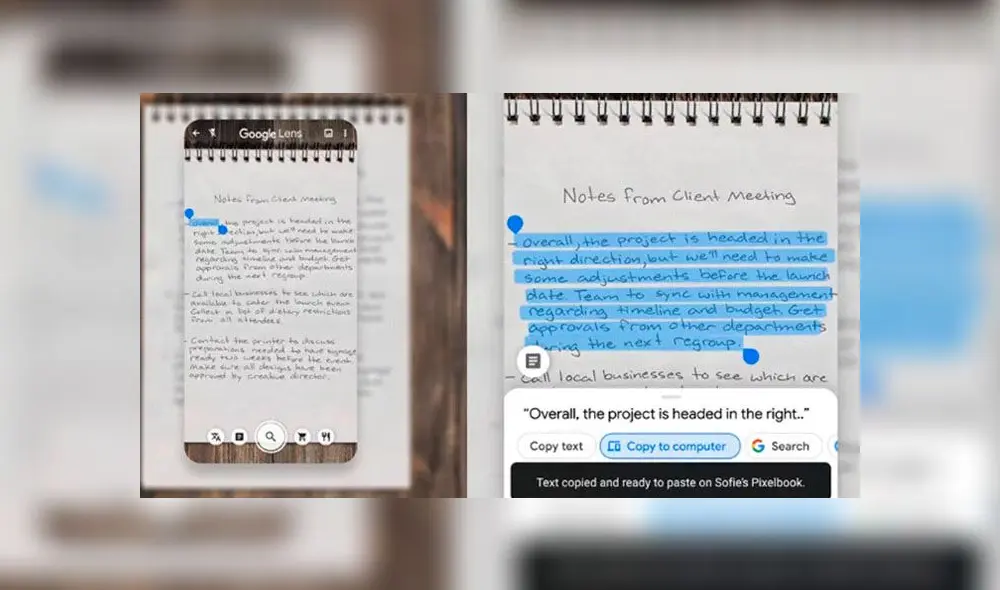 Google Lens
Notes from Client Meeting
Overall, the project is headed in the
right direction, but we'll need to make
some adjustments before the launch
date. Team to sync with management
regarding timeline and budget. Get
approvals from other departments
during the next regroup.
- Call local businesses to see which are
available to cater the launch event.
Collect a list of dietary restrictions
from all attendees.
- Contact the printer to discuss
preparations needed to have signage
ready two weeks before the event.
Make sure all designs have been
approved by creative director.
Notes from Client Meeting
- Overall, the project is headed in the
right direction, but we'll need to make
some adjustments before the launch
date. Team to sync with management
regarding timeline and budget. Get
approvals from other departments
during the next regroup.
- Call local businesses to see which are
“Overall, the project is headed in the right..”
Copy text
Copy to computer
Search
Text copied and ready to paste on Sofie's Pixelbook.